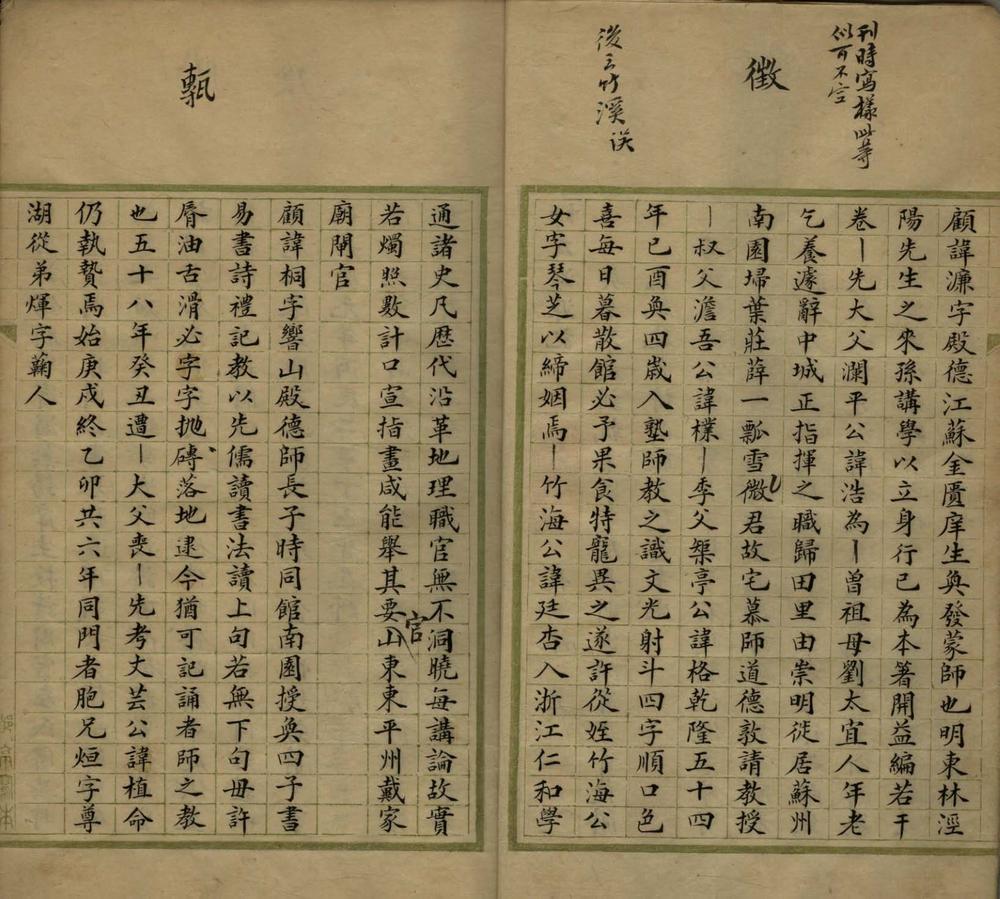 刊時寫樣此等
似可不空
徵
後云竹溪誤
顧諱濂字殿德江蘇金匱庠生奐發蒙師也明東林涇
陽先生之來孫講學以立身行已為本著開益編若干
卷｜先大父瀾平公諱浩為｜曾祖母劉太宜人年老
乞養遽辭中城正指揮之職歸田里由崇明徙居蘇州
南園埽葉莊薛一瓢雪微君故宅慕師道德敦請教授
｜叔父澹吾公諱檏｜季父榘亭公諱格乾隆五十四
年已酉奐四歲入塾師教之識文光射斗四字順口色
喜每日暮散館必予果食特寵異之遂許從姪竹海公
女字琴芝以締姻焉｜竹海公諱廷杏入浙江仁和學
甎
通諸史凡歷代沿革地理職官無不洞曉每講論故實
若燭照數計口宣指畫咸能舉其要官山東東平州戴家
廟閘官
顧諱桐字響山殿德師長子時同館南園授奐四子書
易書詩禮記教以先儒讀書法讀上句若無下句毋許
脣油古滑必字字拋磚落地逮今猶可記誦者師之教
也五十八年癸丑遭｜大父喪｜先考丈芸公諱植命
仍執贄焉始庚戌終乙卯共六年同門者胞兄烜字尊
湖從弟煇字蘜人